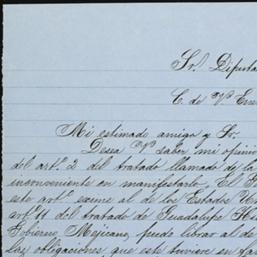 Sr. Diputa
C. de Vª Ene
Mi estimado amigo y Sr.
Desea Vª saber mi opinio
del artº 2 del tratado llamado de la
inconveniente en manifestarlo. El
este artº exime al de los Estados Un
artº 11 del tratado de Guadalupe Hi
Gobierno Mejicano, puede librar al de
las obligaciones que este tuviese en fa